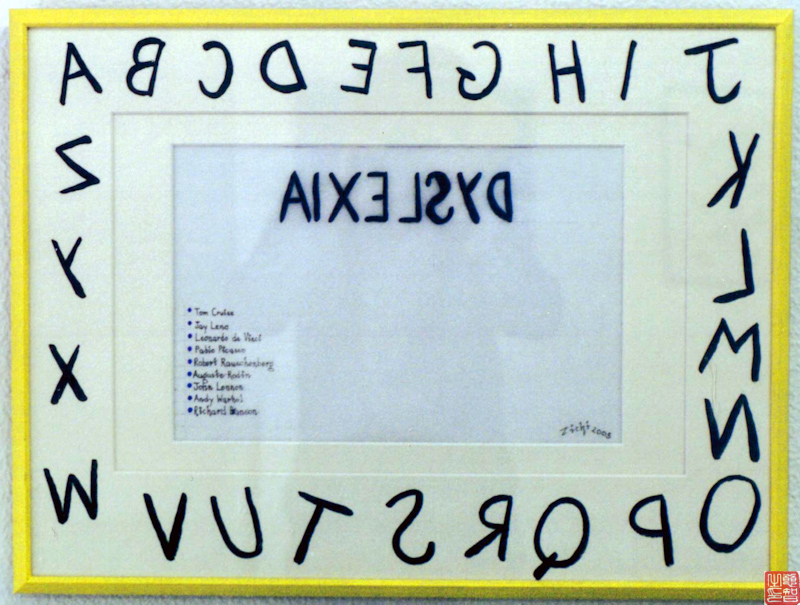 A B C D E F G H I J
K
L
M
N
O
P
Q
R
S
T
U
V
W
X
Y
Z
DYSLEXIA
• Tom Cruise
• Jay Leno
• Leonardo da Vinci
• Pablo Picasso
• Robert Rauschenberg
• Auguste Rodin
• John Lennon
• Andy Warhol
• Richard
Zichi 2008